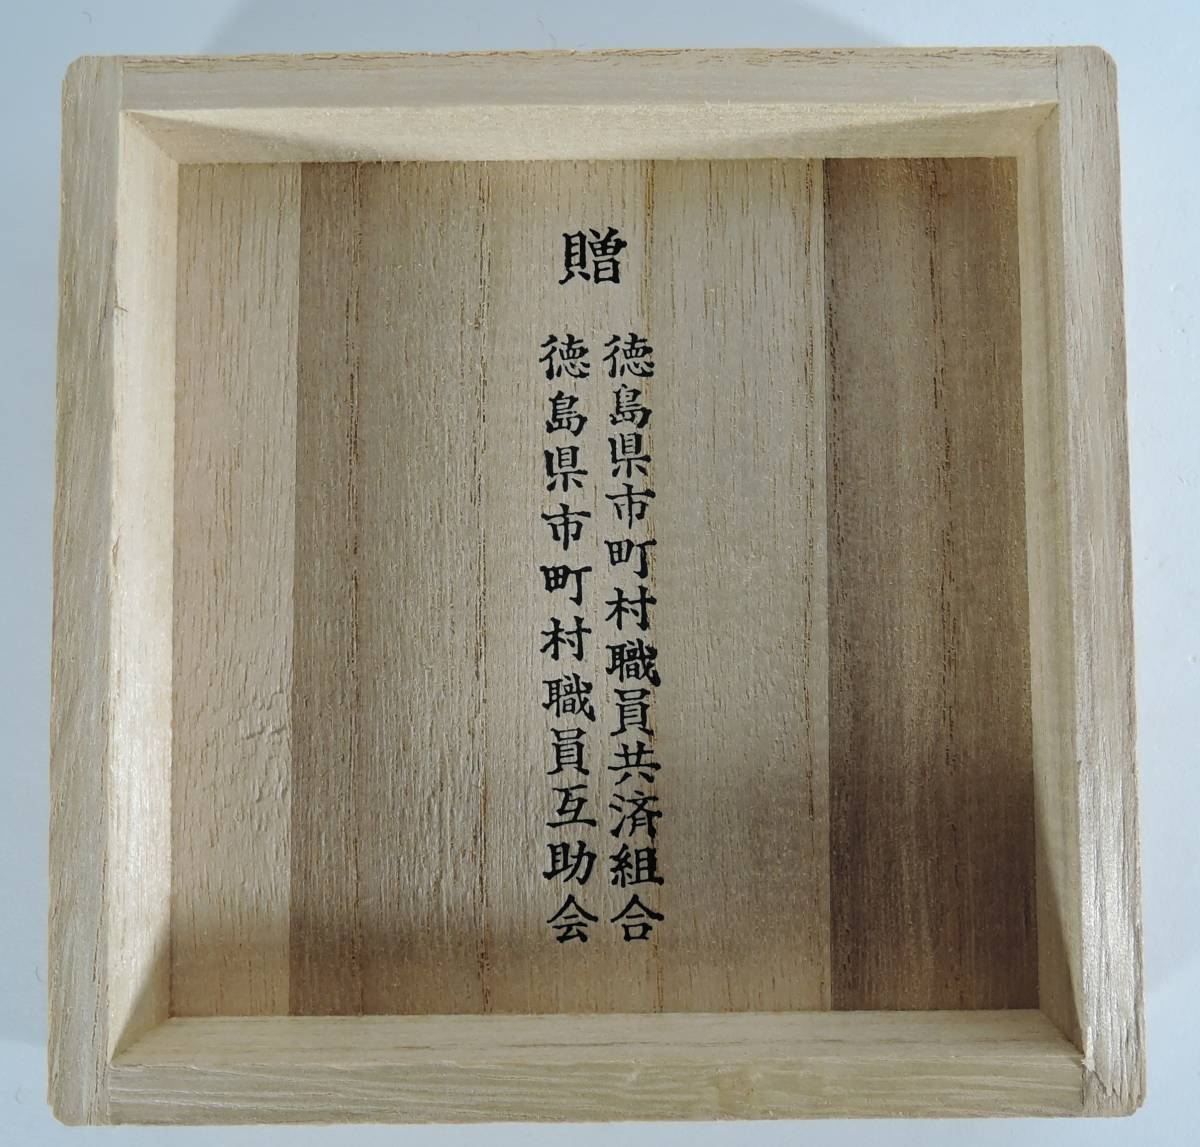 贈
徳島県市町村職員共済組合
徳島県市町村職員互助会